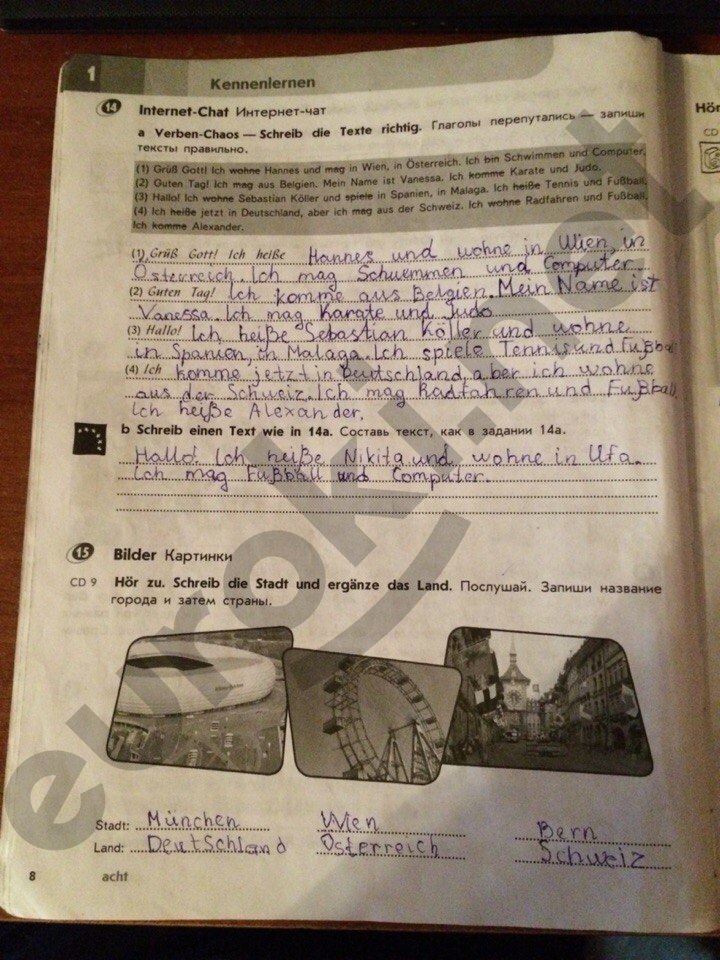 1
Kennenlernen
14 Internet-Chat Интернет-чат
a Verben-Chaos — Schreib die Texte richtig. Глаголы перепутались — запиши
тексты правильно.
(1) Grüß Gott! Ich wohne Hannes und mag in Wien, in Österreich. Ich bin Schwimmen und Computer.
(2) Guten Tag! Ich mag aus Belgien. Mein Name ist Vanessa. Ich komme Karate und Judo.
(3) Hallo! Ich wohne Sebastian Köller und spiele in Spanien, in Malaga. Ich heiße Tennis und Fußball.
(4) Ich heiße jetzt in Deutschland, aber ich mag aus der Schweiz. Ich wohne Radfahren und Fußball.
Ich komme Alexander.
(1) Grüß Gott! Ich heiße Hannes und wohne in Wien, in
Österreich. Ich mag Schuemmen und Computer
(2) Guten Tag! Ich komme aus Belgien. Mein Name ist
Vanessa. Ich mag Karate und Judo
(3) Hallo! Ich heiße Sebastian Köller und wohne
in Spanien, in Malaga. Ich spiele Tennis und Fußball
(4) Ich komme jetzt in Deutschland, aber ich wohne
aus der Schweiz. Ich mag Radfahren und Fußball
Ich heiße Alexander.
b Schreib einen Text wie in 14a. Составь текст, как в задании 14а.
Hallo! Ich heiße Nikita und wohne in Ufa.
Ich mag Fußball und Computer.
15 Bilder Картинки
CD 9 Hör zu. Schreib die Stadt und ergänze das Land. Послушай. Запиши название
города и затем страны.
Stadt: München Wien Bern
Land: Deutschland Österreich Schweiz
8 acht
Hör
CD
euroki.net